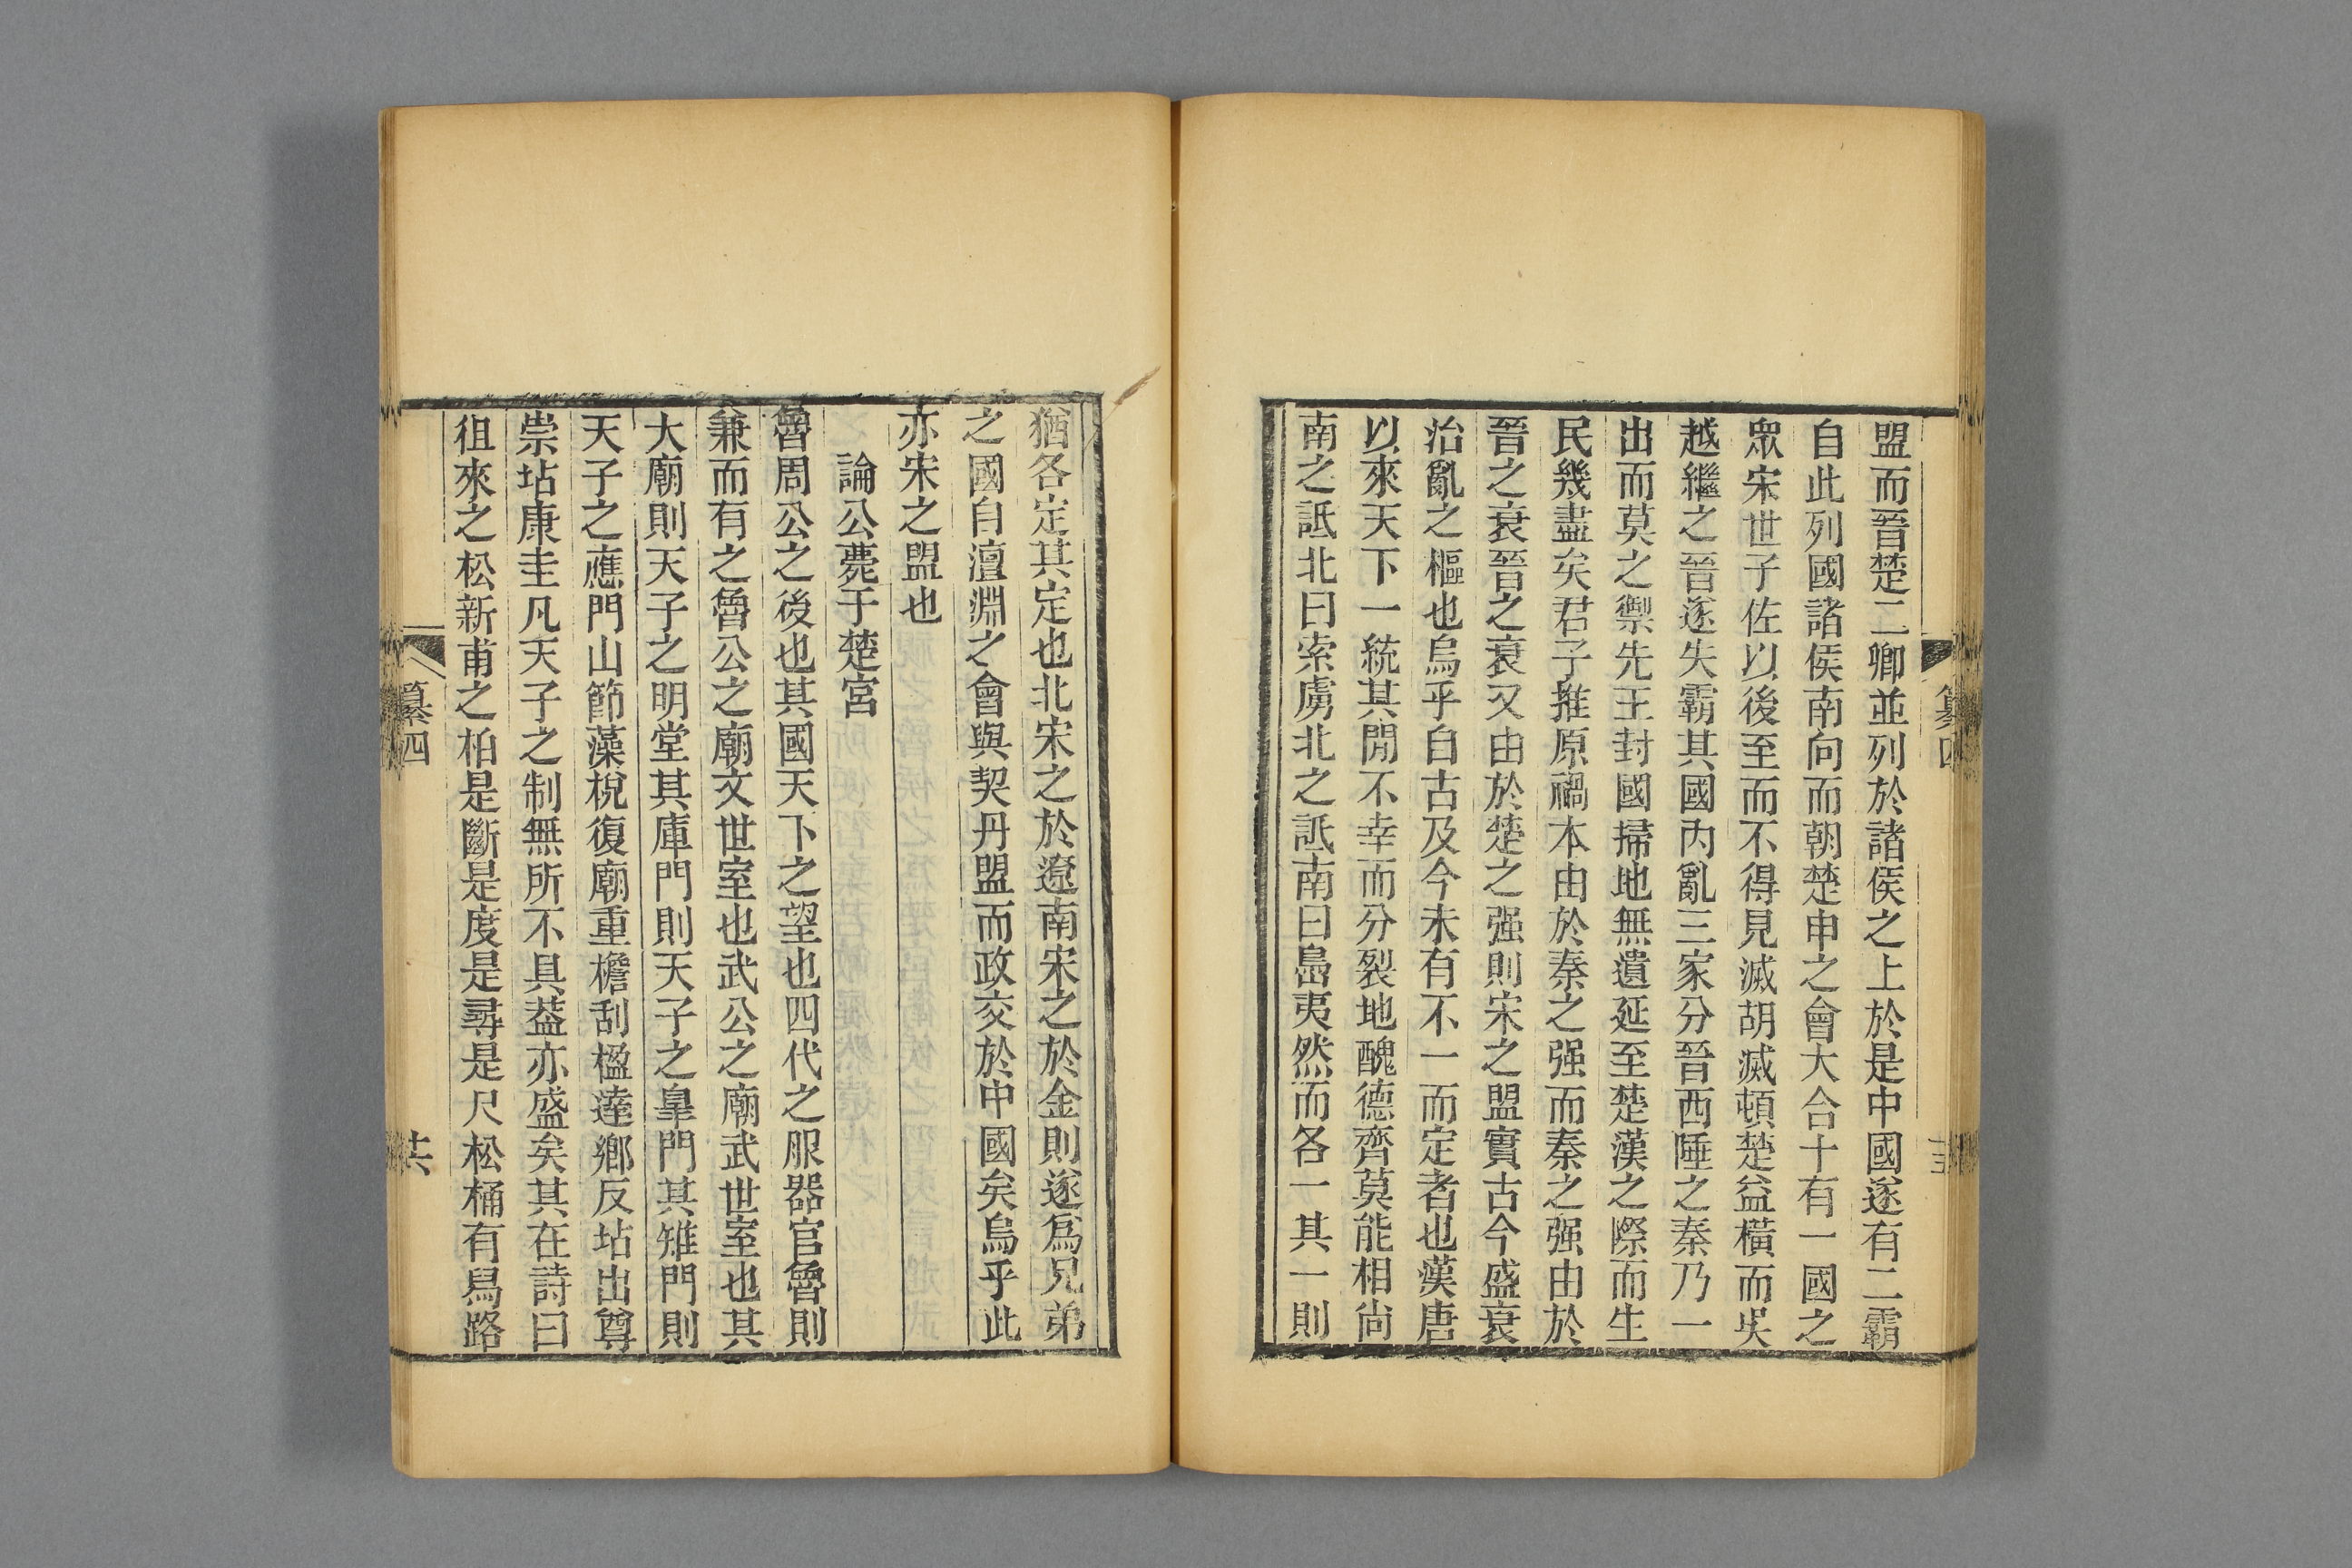 盟而晉楚二卿並列於諸侯之上於是中國遂有二霸
自此列國諸侯南向而朝楚申之會大合十有一國之
眾宋世子佐以後至而不得見滅胡滅頓楚益橫而吳
越繼之晉遂失霸其國內亂三家分晉西陲之秦乃一
出而莫之禦先王封國掃地無遺延至楚漢之際而生
民幾盡矣君子推原禍本由於秦之强而秦之强由於
晉之衰晉之衰又由於楚之强則宋之盟實古今盛衰
治亂之樞也烏乎自古及今未有不一而定者也漢唐
以來天下一統其閒不幸而分裂地醜德齊莫能相尚
南之詆北曰索虜北之詆南曰島夷然而各一其一則
猶各定其定也北宋之於遼南宋之於金則遂爲兄弟
之國自澶淵之會與契丹盟而政交於中國矣烏乎此
亦宋之盟也
論公薨于楚宮
魯周公之後也其國天下之望也四代之服器官魯則
兼而有之魯公之廟文世室也武公之廟武世室也其
大廟則天子之明堂其庫門則天子之臯門其雉門則
天子之應門山節藻梲復廟重檐刮楹達鄉反坫出尊
崇坫康圭凡天子之制無所不具葢亦盛矣其在詩曰
徂來之松新甫之柏是斷是度是尋是尺松桷有舄路
纂四